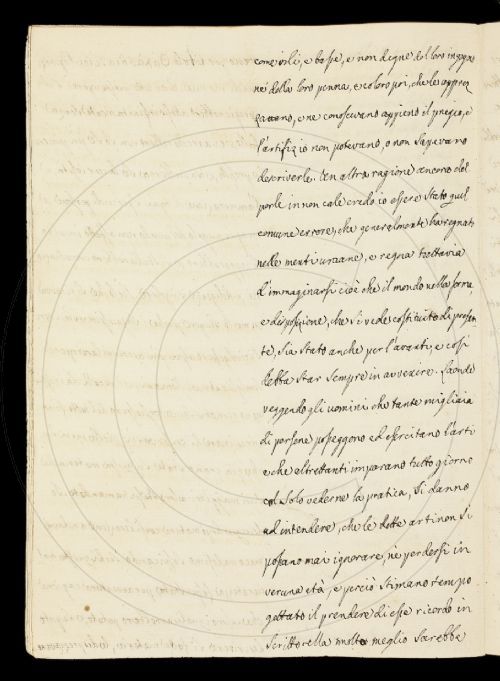 come vili, e basse, e non degne del loro ingegno
né della loro penna, e coloro poi, che le apprez
zavano, e ne conoscevano appieno il pregio, e
l'artifizio non potevano, o non sapevano
descriverle. Un altra ragione ancora del
porle in non cale credo io essere stato quel
comune errore, che generalmente ha regnato
nelle menti umane, e regna tuttavia
d'immaginarsi cioè che il mondo nella forma
e disposizione, che si vede costituito di presen
te, sia stato anche per l'avanti, e così
debba star sempre in avvenire. Laonde
veggendo gli uomini che tante migliaia
di persone posseggono ed esercitano l'arti
e che altrettanti imparano tutto giorno
col solo vederne la pratica, si danno
ad intendere, che le dette arti non si
possano mai ignorare, né perdersi in
veruna età, e perciò stimano tempo
gettato il prendere di esse ricordo in
scritto ella molto meglio sarebbe